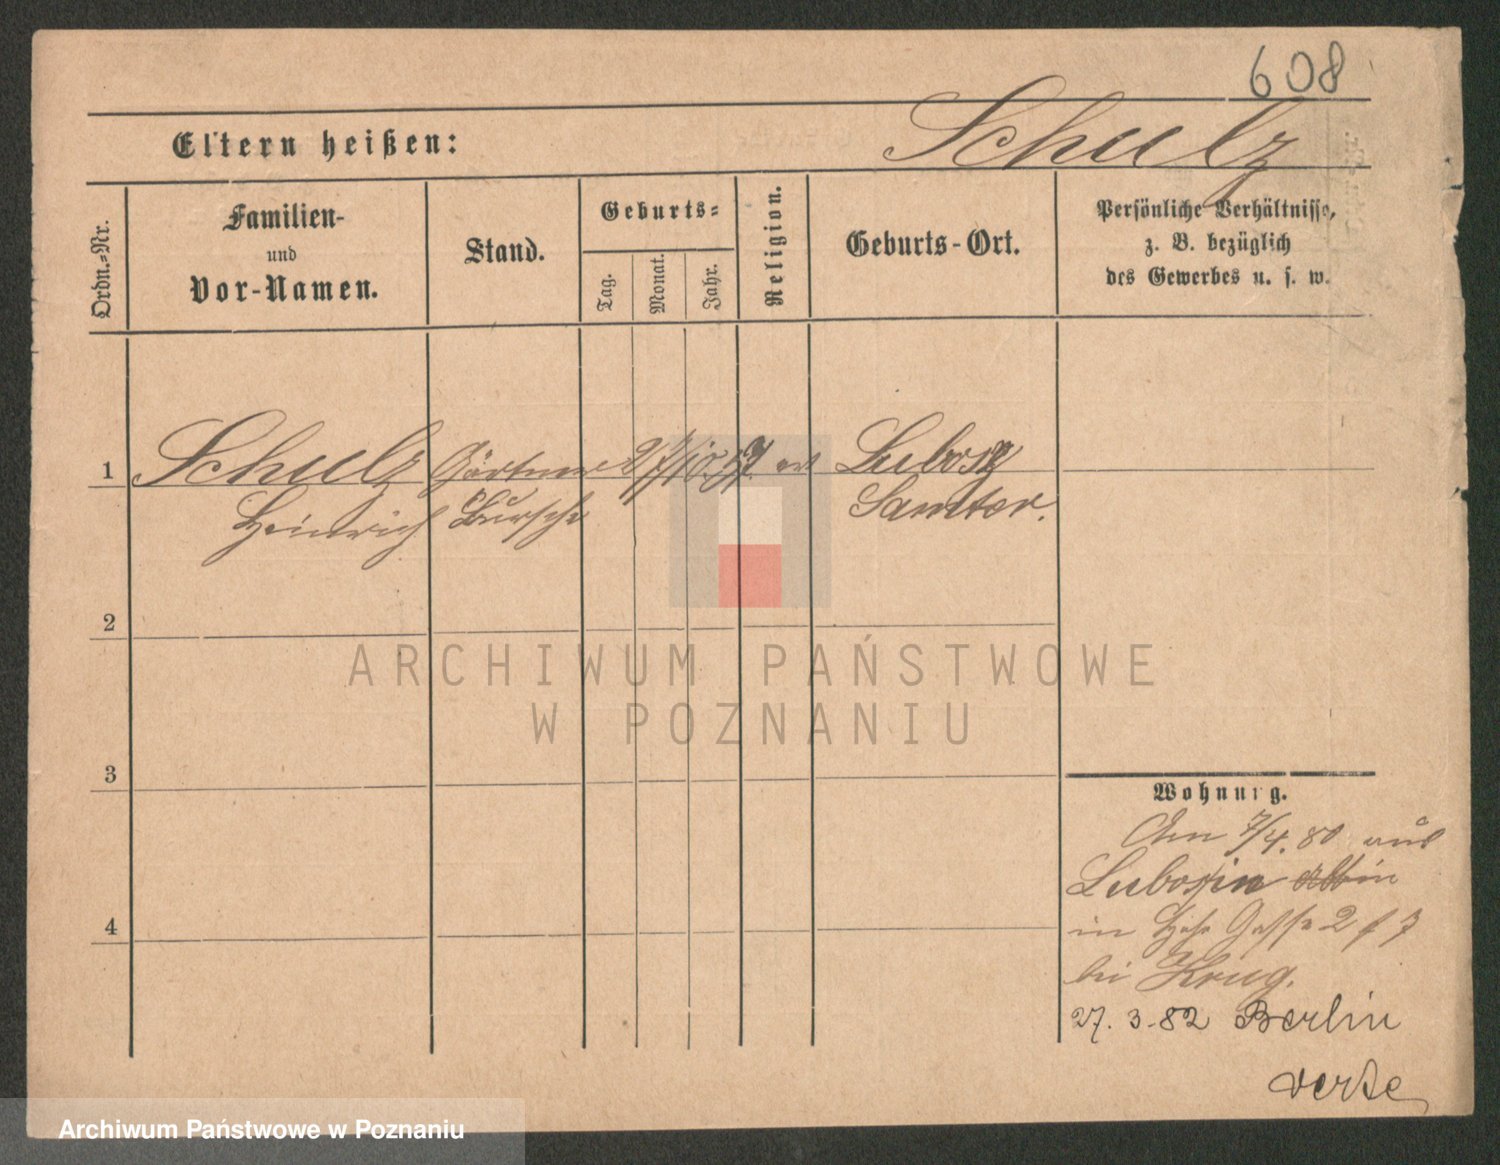 608
Eltern heißen: Schulz
Ordn.-Nr.
Familien-
und
Vor-Namen.
Stand.
Geburts-
Tag.
Monat.
Jahr.
Religion.
Geburts-Ort.
Persönliche Verhältnisse,
z. B. bezüglich
des Gewerbes u. s. w.
1 Schulz Gärtner 27/10.57 ev Lubosz
Heinrich Bursche Samter.
2
ARCHIWUM PAŃSTWOWE
W POZNANIU
3
Wohnung.
Am 7/4. 80 aus
Lubosin
in Gasse 2
bei Krug.
4
27. 3. 82 Berlin
verte
Archiwum Państwowe w Poznaniu